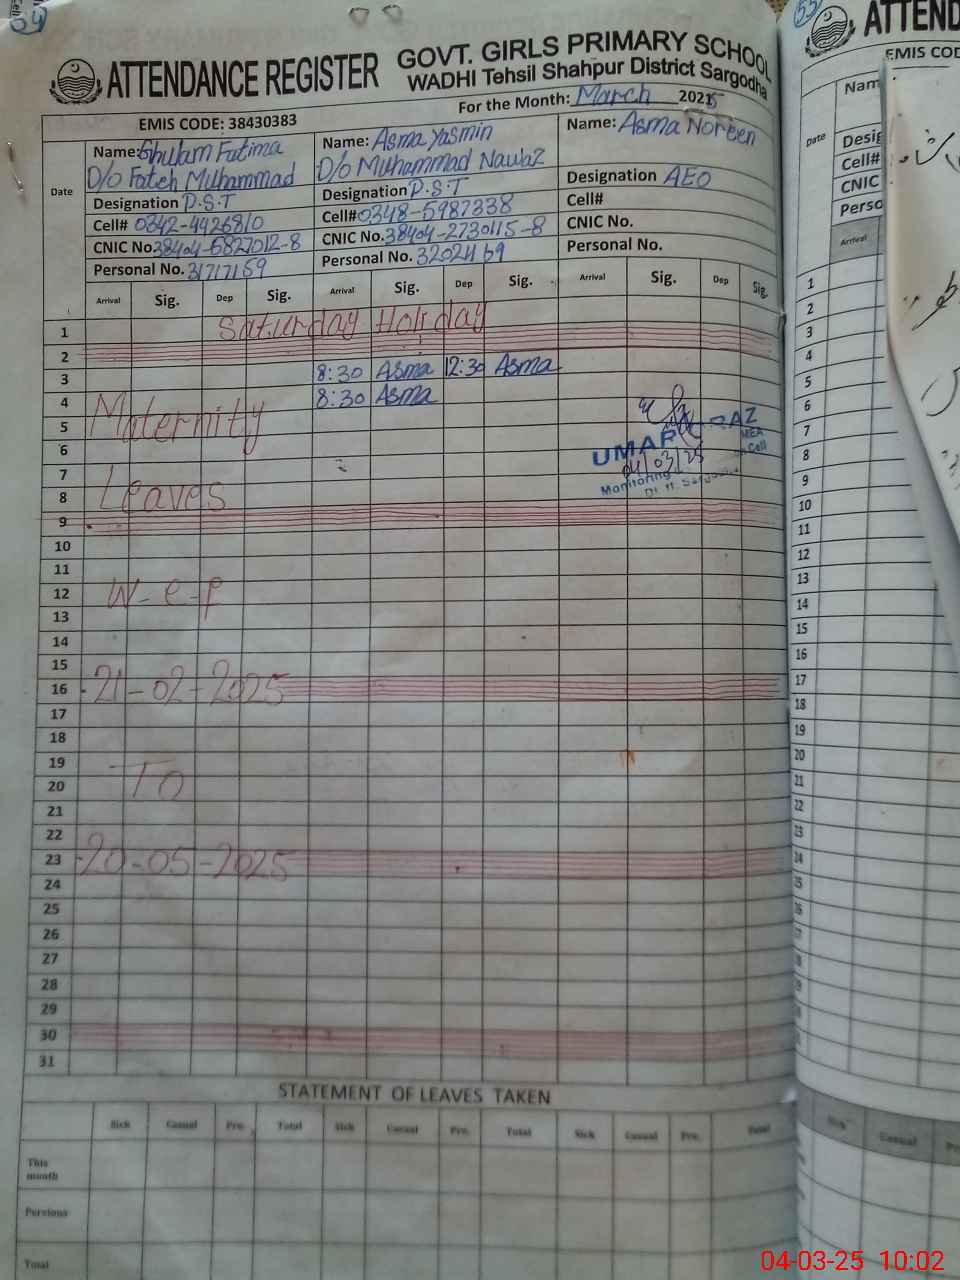 54
ATTENDANCE REGISTER
GOVT. GIRLS PRIMARY SCHOOL
WADHI Tehsil Shahpur District Sargodha
For the Month: March 2025
EMIS CODE: 38430383
Date
Name: Ghulam Fatima
D/o Fateh Muhammad
Designation P.S.T
Cell# 0342-4426810
CNIC No. 38404-6827012-8
Personal No. 31717159
Name: Asma Yasmin
D/o Muhammad Nawaz
Designation P.S.T
Cell# 0348-5987338
CNIC No. 38404-2730115-8
Personal No. 32024169
Name: Asma Noreen
Designation AEO
Cell#
CNIC No.
Personal No.
Arrival Sig. Dep Sig. Arrival Sig. Dep Sig. Arrival Sig. Dep Sig.
1 Saturday Holiday
2
3 8:30 Asma 12:30 Asma
4 8:30 Asma
Maternity
5
6
7
8 Leaves
9
10
11
12 W-e-f
13
14
15
16 21-02-2025
17
18
19
20 To
21
22
23 20-05-2025
24
25
26
27
28
29
30
31
UMAR
MEA
04/03/25
Monitoring Cell
STATEMENT OF LEAVES TAKEN
Sick Casual Pre. Total Sick Casual Pre. Total Sick Casual Pre. Total
This month
Total
55
ATTEND
EMIS COD
Date
Nam
Desig
Cell#
CNIC
Perso
Arrival
1
2
3
4
5
6
7
8
9
10
11
12
13
14
15
16
17
18
19
20
21
22
23
24
25
26
Sick Casual
04-03-25 10:02